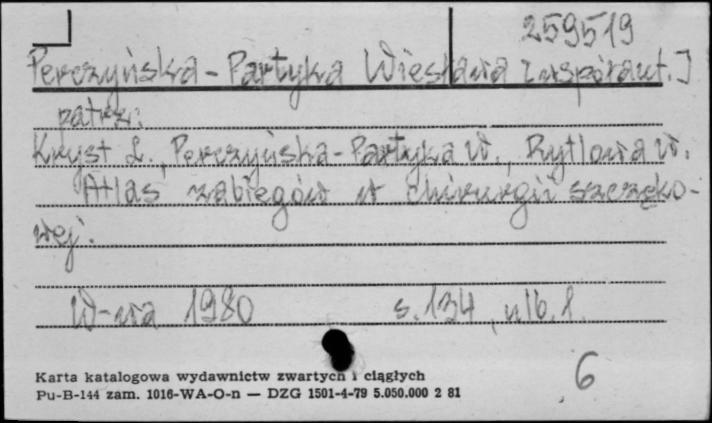 259519
Perczyńska-Partyka Wiesława [współaut.]
patrz:
Kryst L., Perczyńska-Partyka W., Rytlowa W.
Atlas zabiegów w chirurgii szczęko-
wej.
W-wa 1980 s. 134, nlb. 1.
6
Karta katalogowa wydawnictw zwartych i ciągłych
Pu-B-144 zam. 1016-WA-O-n — DZG 1501-4-79 5.050.000 2 81